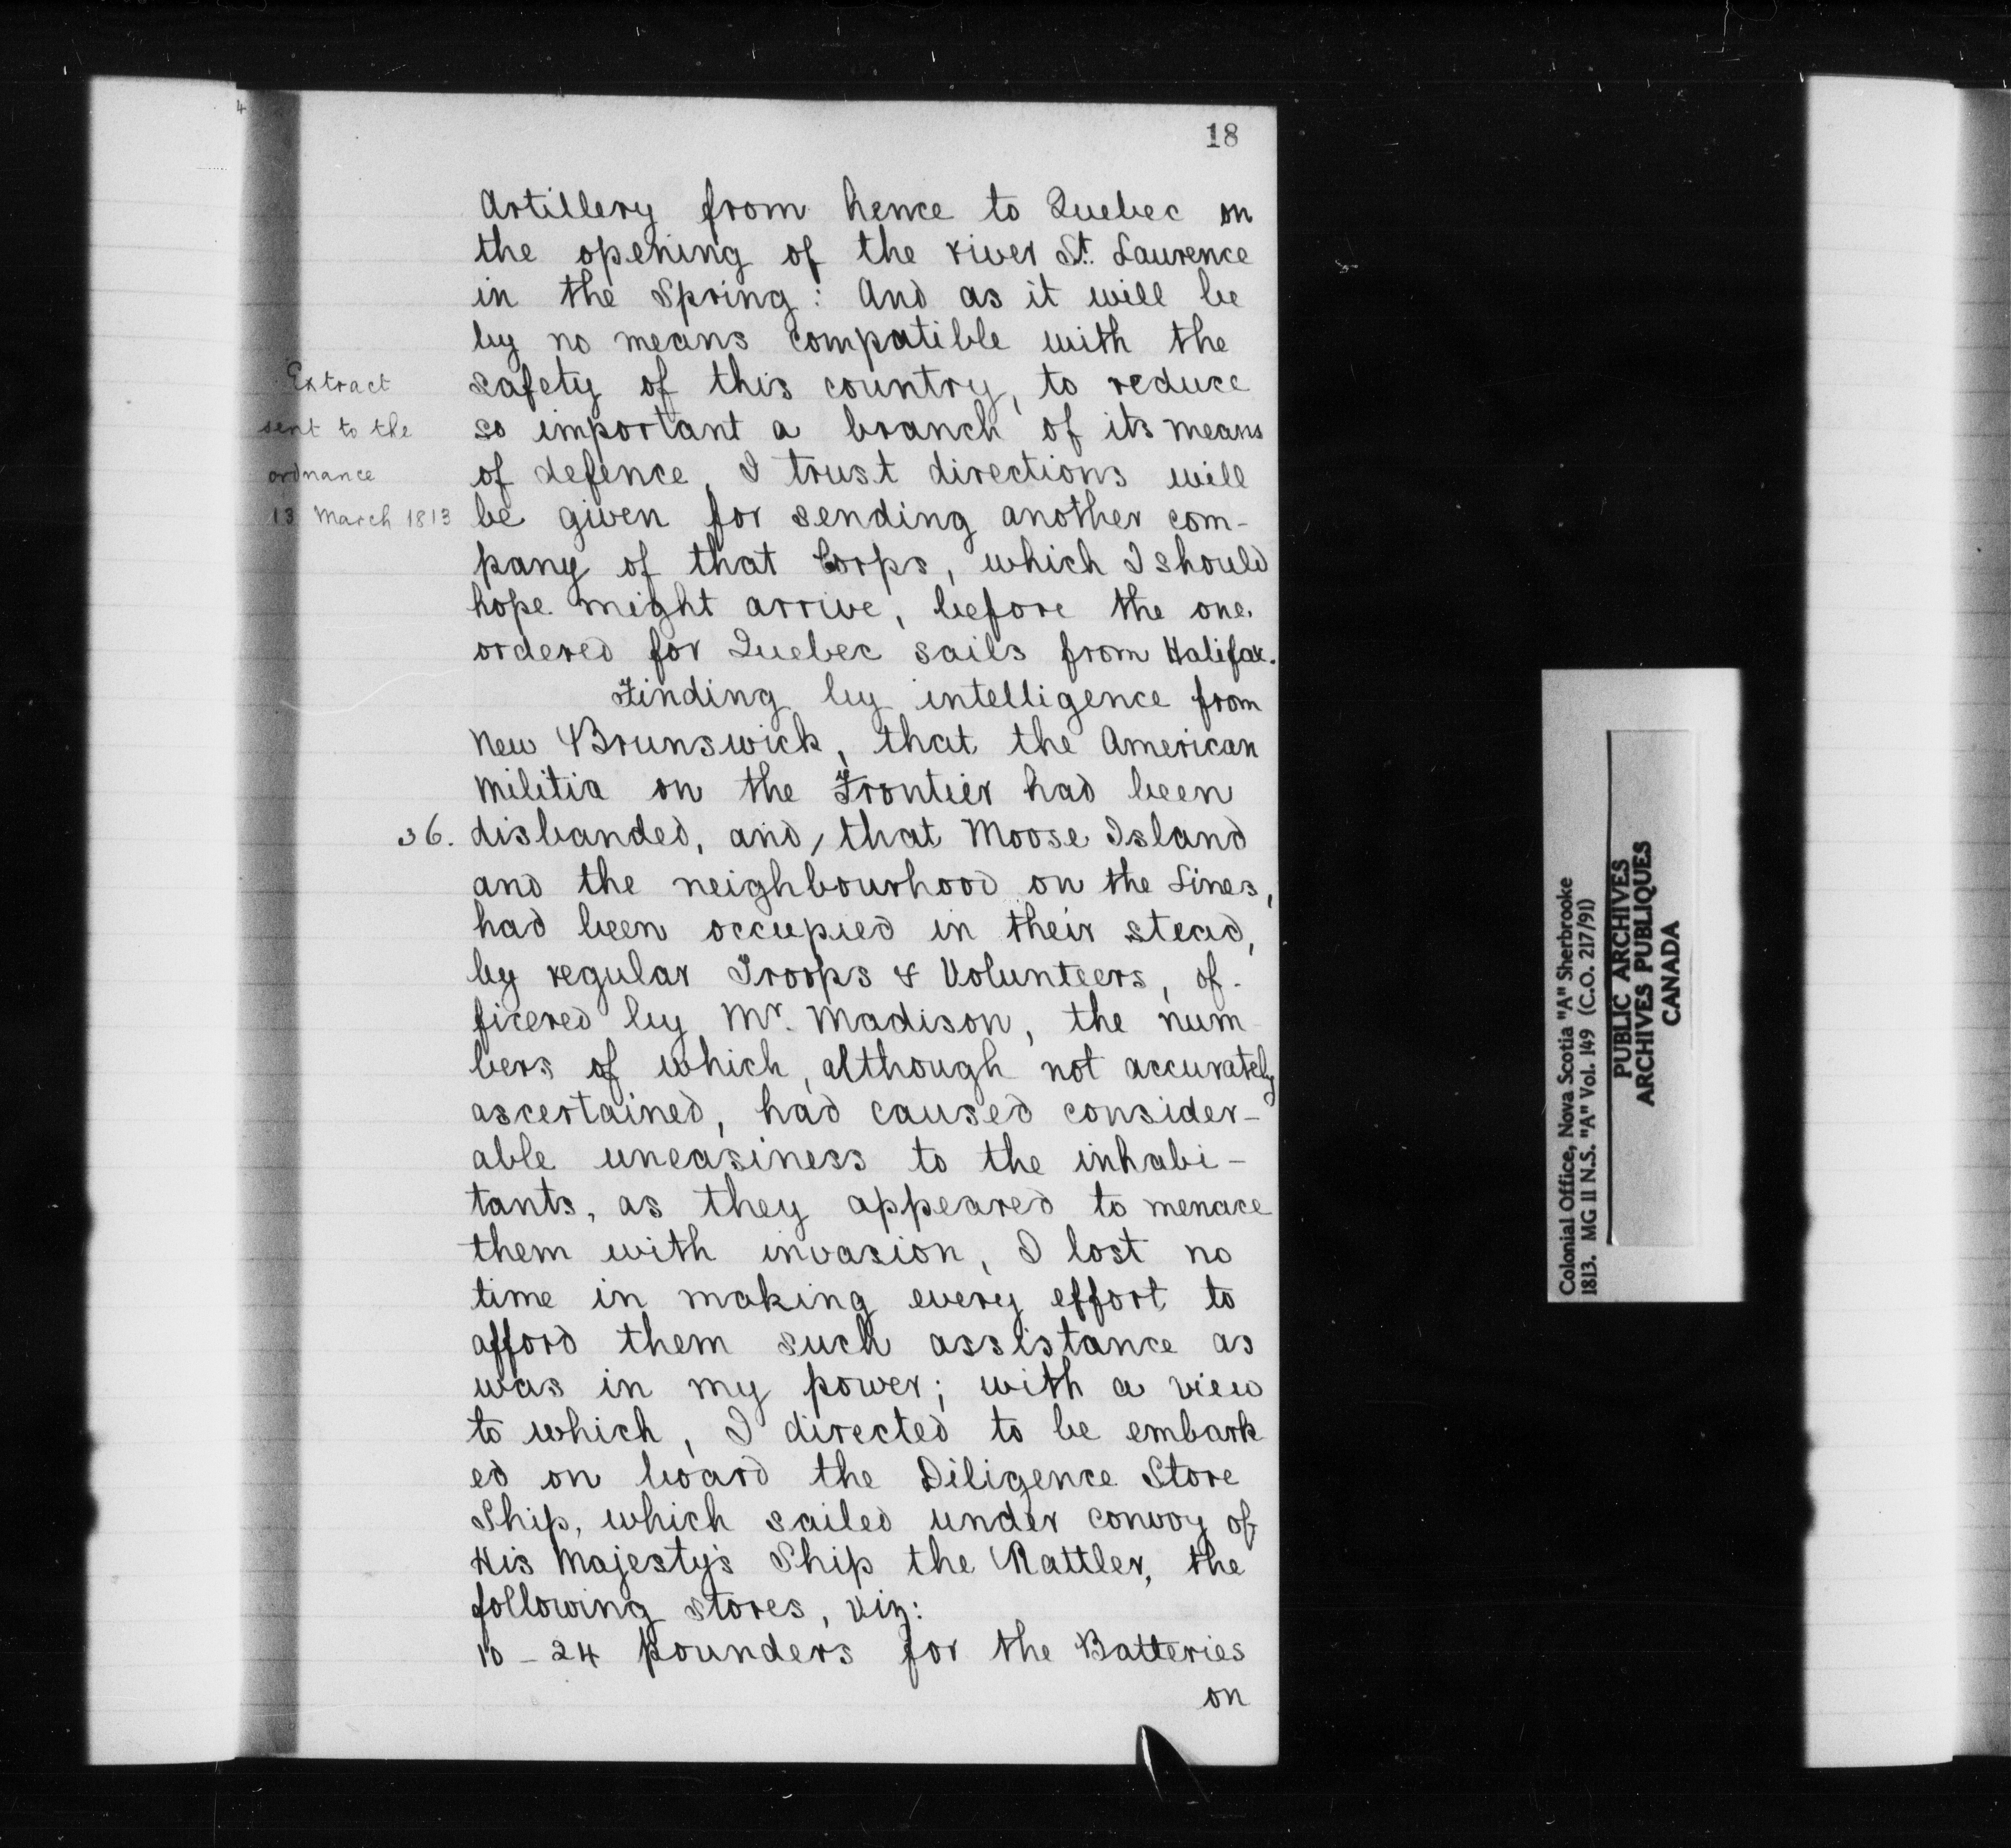 18
Artillery from hence to Quebec on
the opening of the river St. Laurence
in the Spring: And as it will be
by no means compatible with the
safety of this country, to reduce
so important a branch of its means
of defence, I trust directions will
be given for sending another com-
pany of that Corps, which I should
hope might arrive, before the one
ordered for Quebec sails from Halifax.
Extract
sent to the
ordnance
13 March 1813
Finding by intelligence from
New Brunswick, that the American
Militia on the Frontier had been
36. disbanded, and, that Moose Island
and the neighbourhood on the Lines,
had been occupied in their stead,
by regular Troops & Volunteers, of-
ficered by Mr. Madison, the num-
bers of which, although not accurately
ascertained, had caused consider-
able uneasiness to the inhabi-
tants, as they appeared to menace
them with invasion, I lost no
time in making every effort to
afford them such assistance as
was in my power; with a view
to which, I directed to be embark
ed on board the Diligence Store
Ship, which sailed under convoy of
His Majesty's Ship the Rattler, the
following stores, viz:
10 - 24 pounders for the Batteries
on
Colonial Office, Nova Scotia "A" Sherbrooke
1813. MG 11 N.S. "A" Vol. 149 (C.O. 217/91)
PUBLIC ARCHIVES
ARCHIVES PUBLIQUES
CANADA